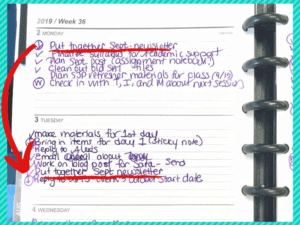 2019 / Week 36
2 MONDAY
Put together Sept. newsletter
Finalize syllabus for academic support
Plan Sept. post (assignment notebook?)
Clean out old SAT files
Plan SJP refresher materials for class (9/15)
W Check in with T, I, and M about next session
3 TUESDAY
make materials for 1st day
Bring in items for day 1 (sticky note)
Reply to
Email about
Work on blog post for Sara - Send
Put together Sept newsletter
Reply to about start date
4 WEDNESDAY